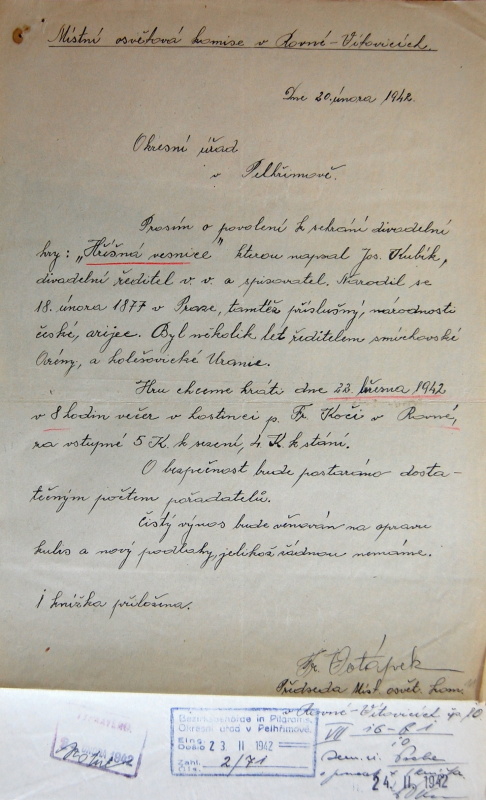 Místní osvětová komise v Rovné-Vítovicích.
Dne 20. února 1942.
Okresní úřad
v Pelhřimově.
Prosím o povolení k sehrání divadelní
hry: „Hříšná vesnice" kterou napsal Jos. Kubík,
divadelní ředitel v. v. a spisovatel. Narodil se
18. února 1877 v Praze, tamtéž příslušný, národnosti
české, arijec. Byl několik let ředitelem smíchovské
Arény, a holešovické Uranie.
Hru chceme hráti dne 22. března 1942
v 8 hodin večer v hostinci p. Fr. Kočí v Rovné,
za vstupné 5 K k sezení, 4 K k stání.
O bezpečnost bude postaráno dosta-
tečným počtem pořadatelů.
Čistý výnos bude věnován na opravu
kulis a nový podlahy, jelikož řádnou nemáme.
1 knížka přiložena.
Fr. Ostápek
Předseda Míst. osvět. kom.
v Rovné-Vítovicích čp. 10
1942
Bezirksbehörde in Pilgrams
Okresní úřad v Pelhřimově.
Eing.
Došlo 23 II 1942
Zahl
Čís. 2/71
VII 16-61
10
24. II. 1942